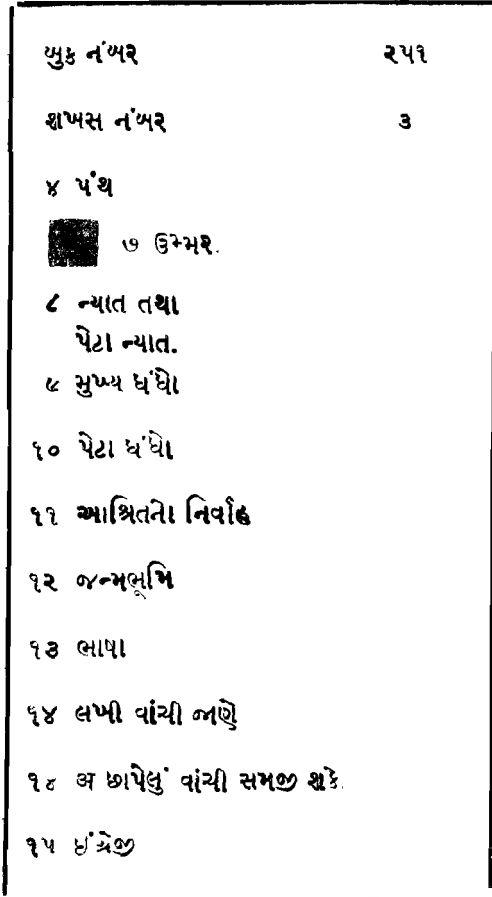 બુક નંબર ૨૫૧
શખસ નંબર ૩
૪ પંથ
૭ ઉમ્મર.
૮ ન્યાત તથા
પેટા ન્યાત.
૯ મુખ્ય ધંધો
૧૦ પેટા ધંધો
૧૧ આશ્રિતનો નિર્વાહ
૧૨ જન્મભૂમિ
૧૩ ભાષા
૧૪ લખી વાંચી જાણે
૧૪ અ છાપેલું વાંચી સમજી શકે.
૧૫ ઇંગ્રેજી